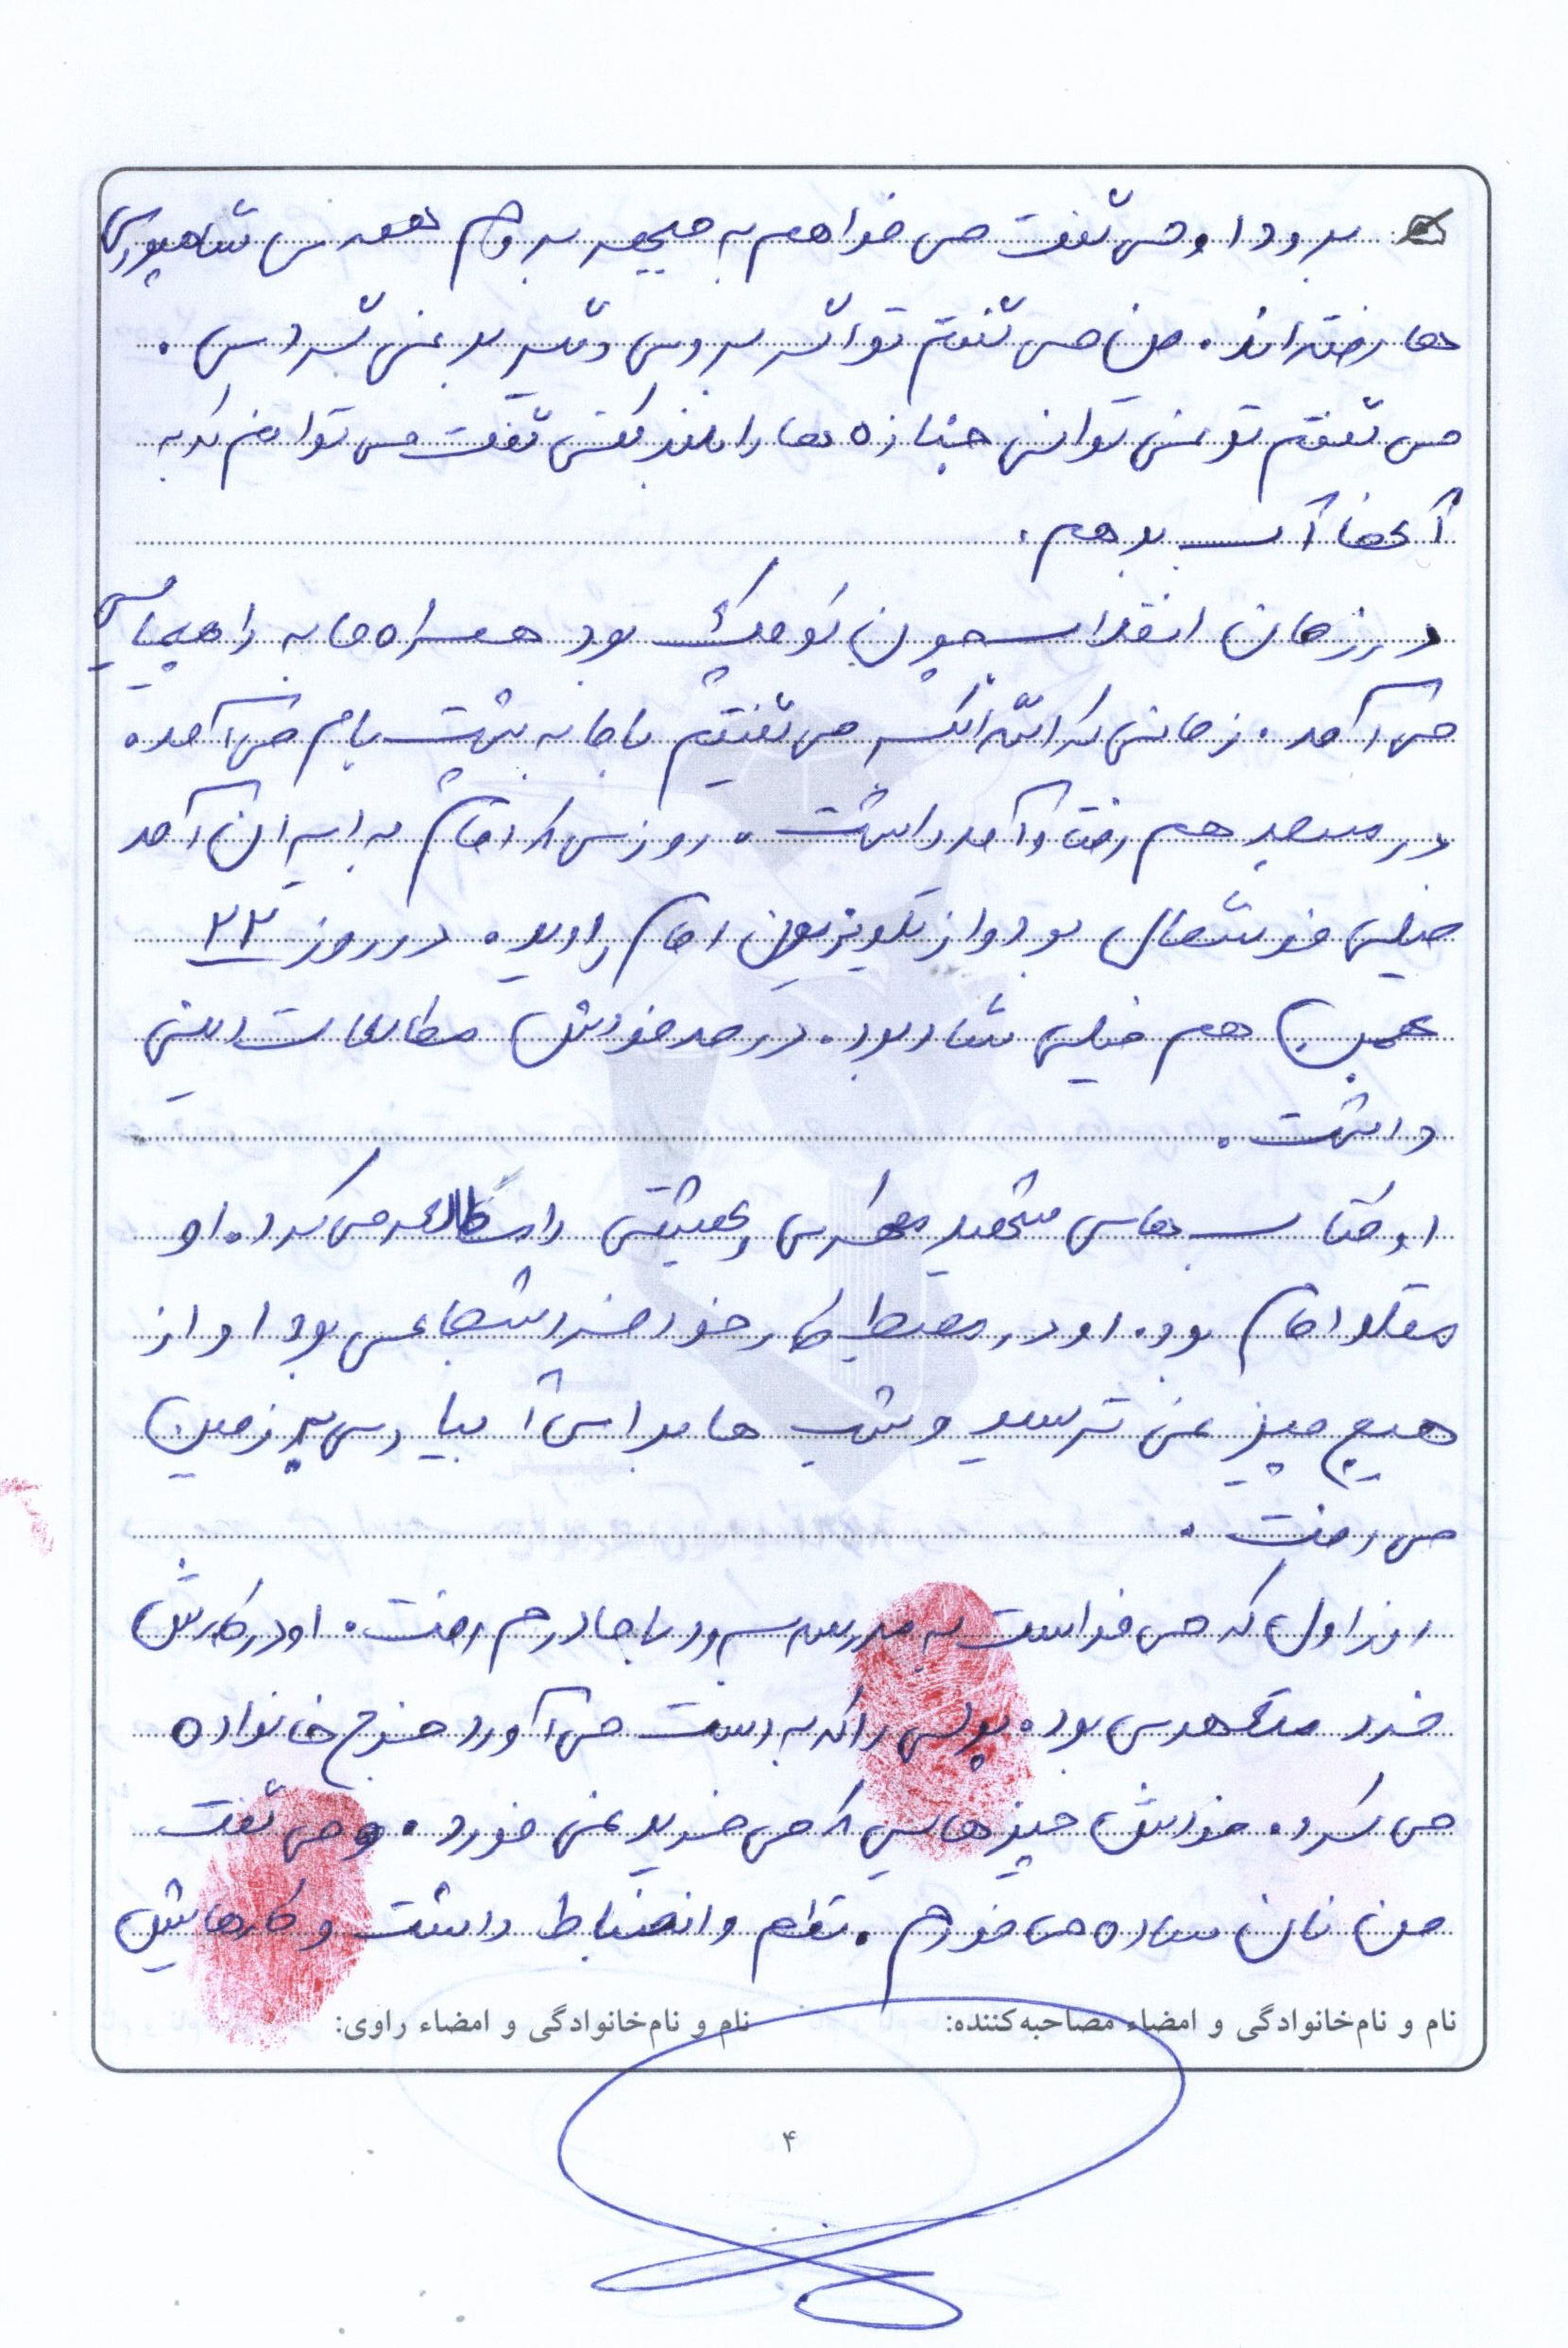 برود او می گفت می خواهم به جبهه بروم همه ی شاهپوری
ها رفته اند. من می گفتم تو اگر بروی دیگر بر نمی گردی.
می گفتم تو نمی توانی جنازه ها را بلند کنی گفت می توانم که به
آنها آب بدهم.
در زمان انقلاب چون کوچک بود همراه ما به راهپیمایی
می آمد. زمانی که الله اکبر می گفتیم با ما به پشت بام می آمد.
در مسجد هم رفت و آمد داشت. روزی که امام به ایران آمد
خیلی خوشحال بود و از تلویزیون امام را دید. در روز ۲۲
بهمن هم خیلی شاد بود. در حد خودش مطالعات دینی
داشت.
او کتاب های شهید مطهری و بهشتی را مطالعه می کرد. او
مقلد امام بود. او در محیط کار خود فرد شجاعی بود او از
هیچ چیز نمی ترسید و شب ها برای آبیاری به زمین
می رفت.
روز اول که می خواست به مدرسه برود با مادرم رفت. او در کارش
فرد متعهدی بود. پولی را که به دست می آورد خرج خانواده
می کرد. خودش چیزهایی که می خرید نمی خورد. و می گفت
من نان ساده می خورم. نظم و انضباط داشت و کارهایش
نام و نام‌خانوادگی و امضاء مصاحبه‌کننده: نام و نام‌خانوادگی و امضاء راوی:
۴